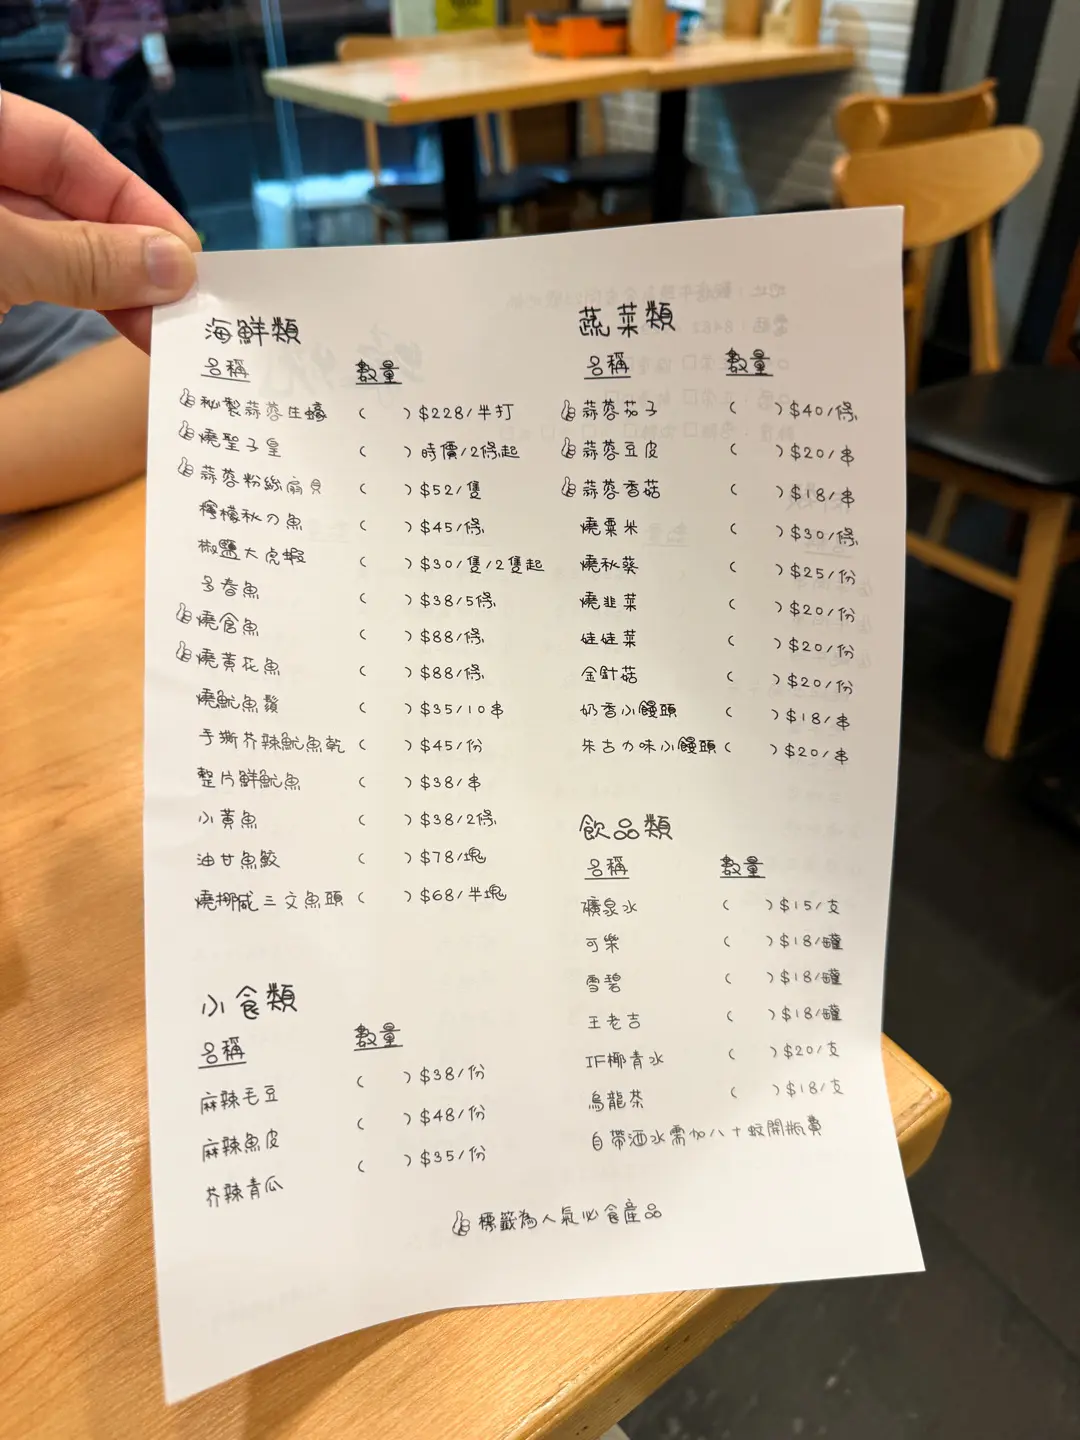 海鮮類
名稱 數量
秘製蒜蓉生蠔 ( ) $228/半打
燒聖子皇 ( ) 時價/2條起
蒜蓉粉絲扇貝 ( ) $52/隻
檸檬秋刀魚 ( ) $45/條
椒鹽大虎蝦 ( ) $30/隻/2隻起
多春魚 ( ) $38/5條
燒倉魚 ( ) $88/條
燒黃花魚 ( ) $88/條
燒魷魚鬚 ( ) $35/10串
手撕芥辣魷魚乾 ( ) $45/份
整片鮮魷魚 ( ) $38/串
小黃魚 ( ) $38/2條
油甘魚鮫 ( ) $78/塊
燒挪威三文魚頭 ( ) $68/半塊
小食類
名稱 數量
麻辣毛豆 ( ) $38/份
麻辣魚皮 ( ) $48/份
芥辣青瓜 ( ) $35/份
蔬菜類
名稱 數量
蒜蓉茄子 ( ) $40/條
蒜蓉豆皮 ( ) $20/串
蒜蓉香菇 ( ) $18/串
燒粟米 ( ) $30/條
燒秋葵 ( ) $25/份
燒韭菜 ( ) $20/份
娃娃菜 ( ) $20/份
金針菇 ( ) $20/份
奶香小饅頭 ( ) $18/串
朱古力味小饅頭 ( ) $20/串
飲品類
名稱 數量
礦泉水 ( ) $15/支
可樂 ( ) $18/罐
雪碧 ( ) $18/罐
王老吉 ( ) $18/罐
IF椰青水 ( ) $20/支
烏龍茶 ( ) $18/支
自帶酒水需加八十蚊開瓶費
標籤為人氣必食產品